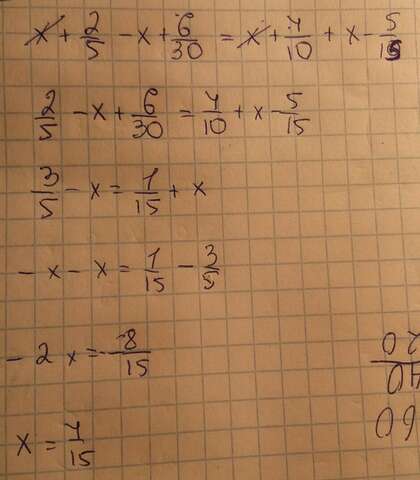 x + 2/5 - x + 6/30 = x + 4/10 + x - 5/15
2/5 - x + 6/30 = 4/10 + x - 5/15
3/5 - x = 1/15 + x
- x - x = 1/15 - 3/5
- 2x = -8/15
x = 4/15